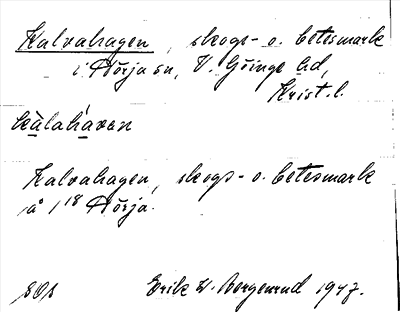 Kalvahagen, skogs- o. betesmark
i Nörja sn, V. Göinge hd,
Krist. l.
kàlahàven
Kalvahagen, skogs- o. betesmark
å 1/18 Nörja.
Erik W. Bergenrud 1947.